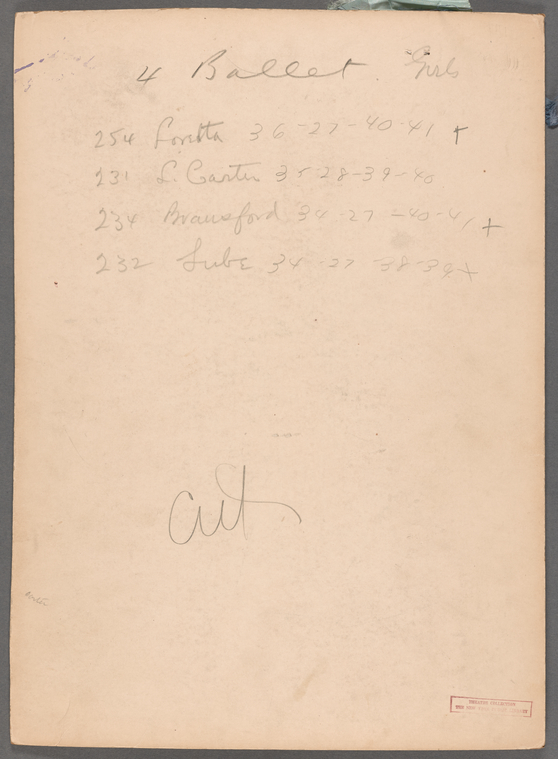 4 Ballet Girls
254 Loretta 36-27-40-41 +
231 L. Carter 35-28-39-40
234 Bransford 34-27-40-41 +
232 34-27-38-39 +
THEATRE COLLECTION
THE NEW YORK PUBLIC LIBRARY